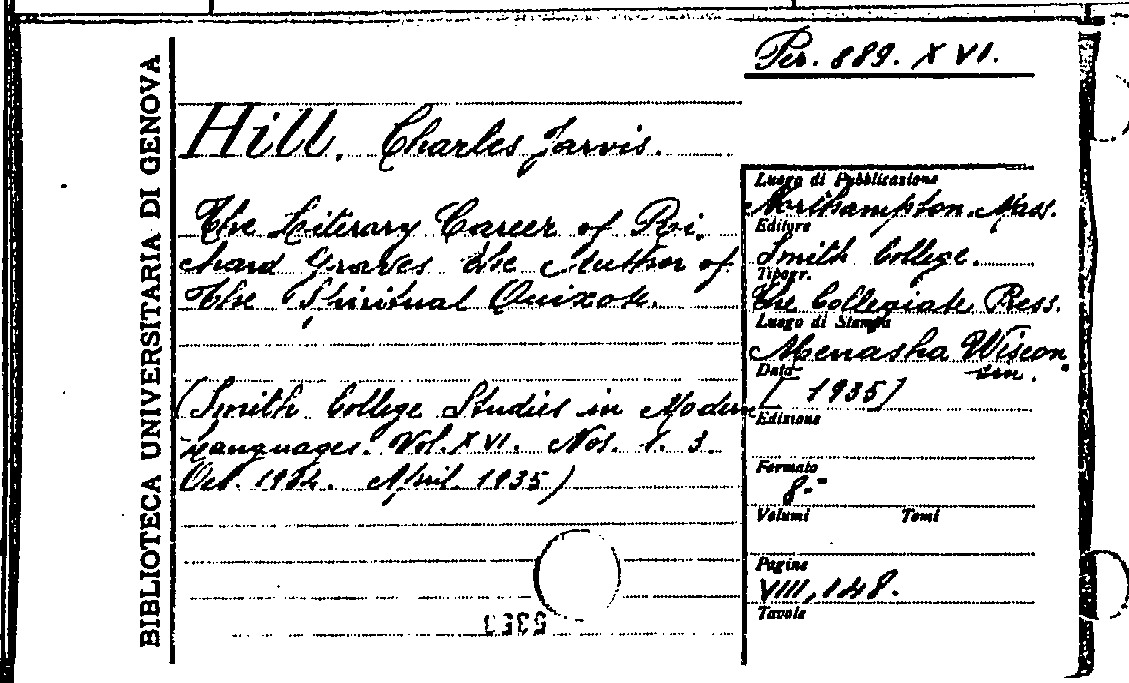 BIBLIOTECA UNIVERSITARIA DI GENOVA
Per. 889. XVI.
Hill. Charles Jarvis.
The Literary Career of Ri-
chard Graves the Author of
The Spiritual Quixote.
(Smith College Studies in Modern
Languages. Vol. XVI. Nos. 1. 3.
Oct. 1934. April 1935)
Luogo di Pubblicazione
Northampton. Mass.
Editore
Smith College.
Tipogr.
The Collegiate Press.
Luogo di Stampa
Menasha Wiscon
sin.
Data
[1935]
Edizione
Formato
8°
Volumi Tomi
Pagine
VIII, 148.
Tavole